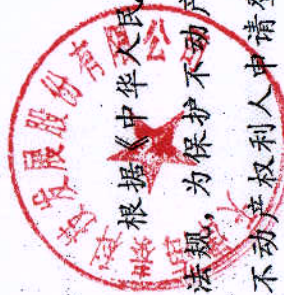 根据《中华人民
法规,为保护不动产
不动产权利人申请
发展股份有限公司